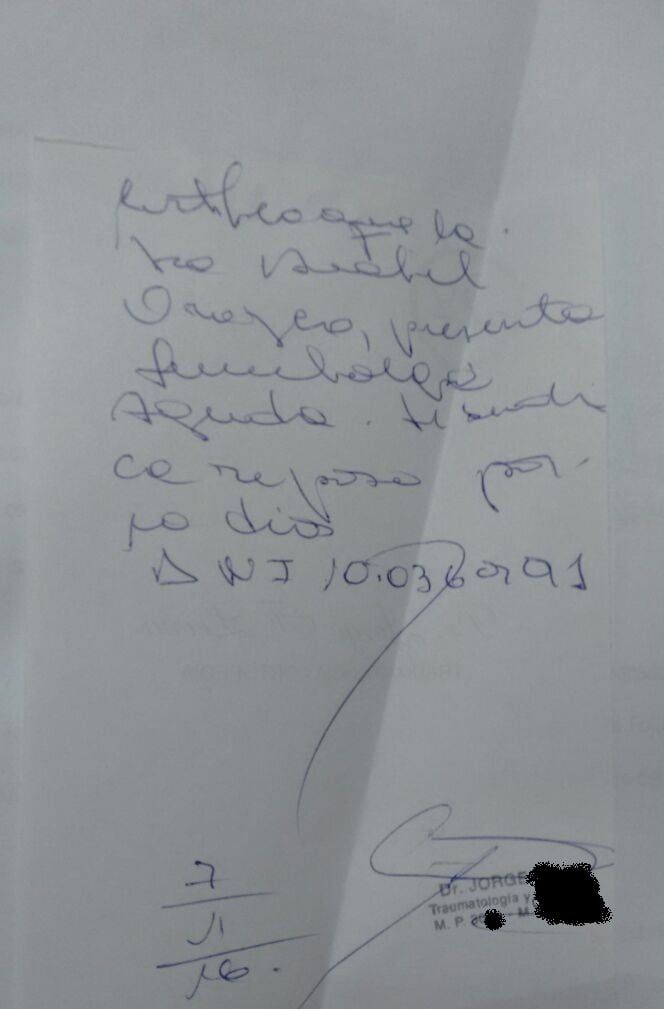 Certifico que la
Sra Anabel
Orozco, presenta
lumbalgia
Aguda. Se indi
ca reposo por
10 dias
DNI 10.036
7
11
16.
Dr. JORGE
Traumatología y
M. P.